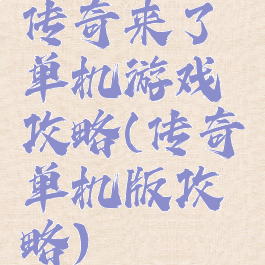 传奇来了
单机游戏
攻略(传奇
单机版攻
略)